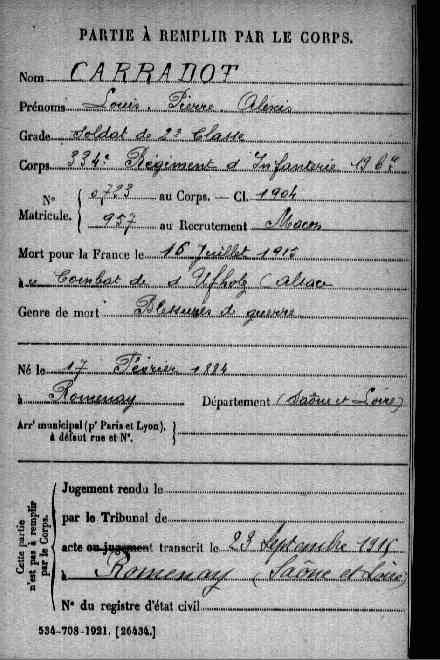 PARTIE À REMPLIR PAR LE CORPS.
Nom CARRADOT
Prénoms Louis. Pierre Alexis
Grade Soldat de 2e Classe
Corps 334e Régiment d'Infanterie 19e Cie
N° Matricule. { 0723 au Corps. — Cl. 1904
957 au Recrutement Macon
Mort pour la France le 16 Juillet 1915
à Combat de d'Ufholz (Alsace
Genre de mort Blessures de guerre
Né le 17 Février 1884
à Romenay Département (Saône et Loire)
Arrt municipal (pr Paris et Lyon), à défaut rue et N°. }
Cette partie n'est pas à remplir par le Corps.
Jugement rendu le
par le Tribunal de
acte ou jugement transcrit le 29 Septembre 1915
à Romenay (Saône et Loire)
N° du registre d'état civil
534-708-1921. [26434.]